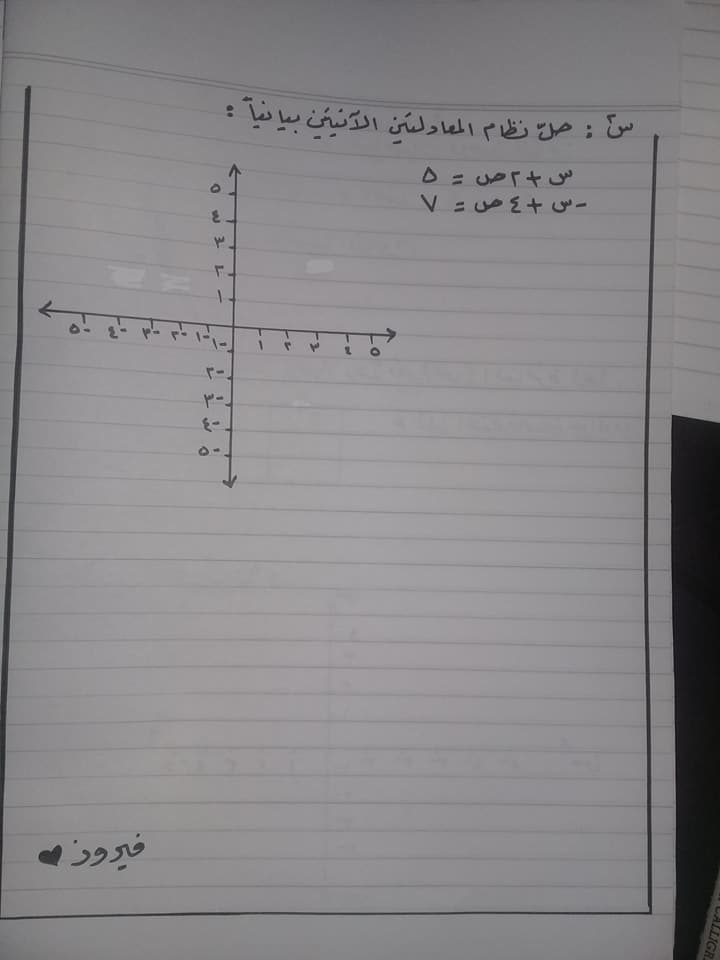 س١ : حلّ نظام المعادلتين الآتيتين بيانياً :
س + ٢ص = ٥
-س + ٤ص = ٧
٥
٤
٣
٢
١
-٥ -٤ -٣ -٢ -١ ١ ٢ ٣ ٤ ٥
-١
-٢
-٣
-٤
-٥
فيروز ♥